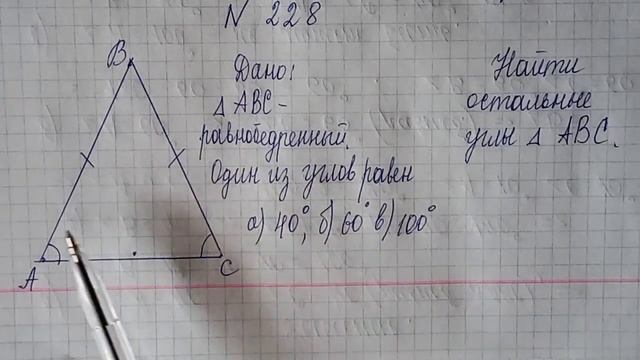 N 228
B
A
C
Дано:
△ ABC -
равнобедренный.
Один из углов равен
а) 40°, б) 60° в) 100°
Найти
остальные
углы △ ABC.